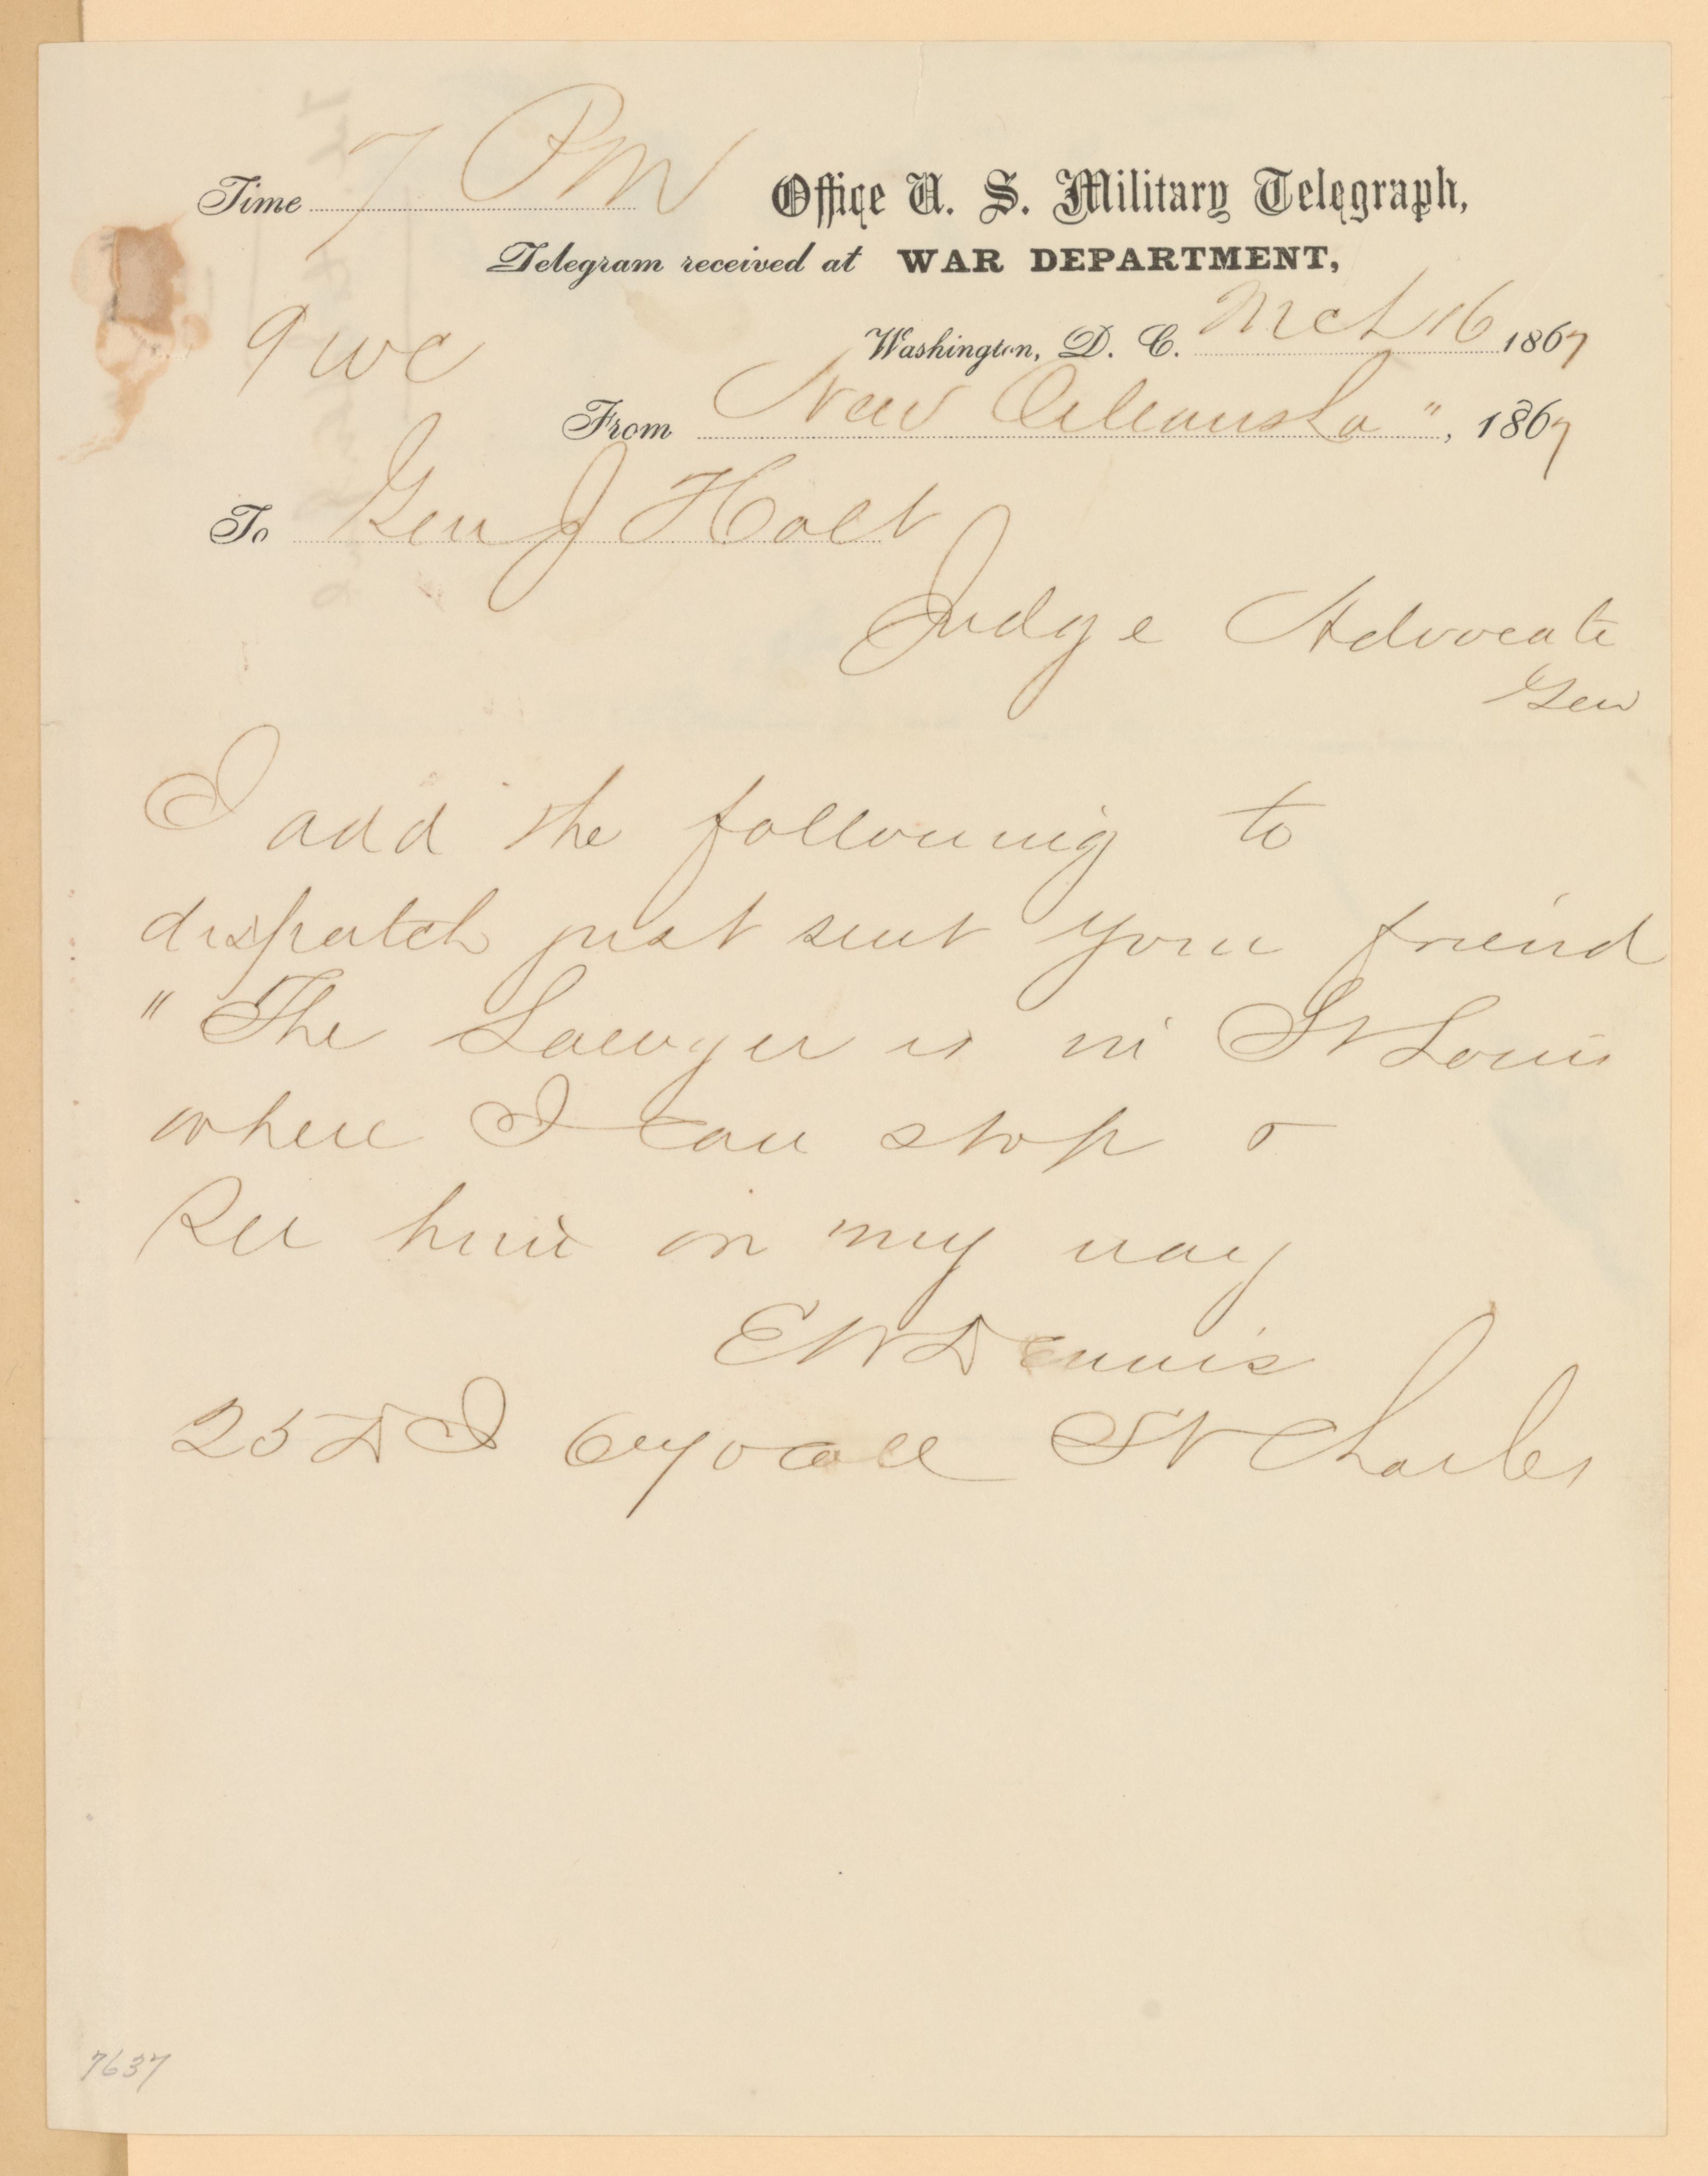 Time 7 PM Office U. S. Military Telegraph,
Telegram received at WAR DEPARTMENT,
9 WC Washington, D. C. Mch 16 1867
From New Orleans La ", 1867
To Gen J Holt
Judge Advocate
Gen
I add the following to
dispatch just sent your friend
" The Lawyer is in St Louis
where I can stop &
See him on my way
E W Dennis
25 D I St Charles
7637